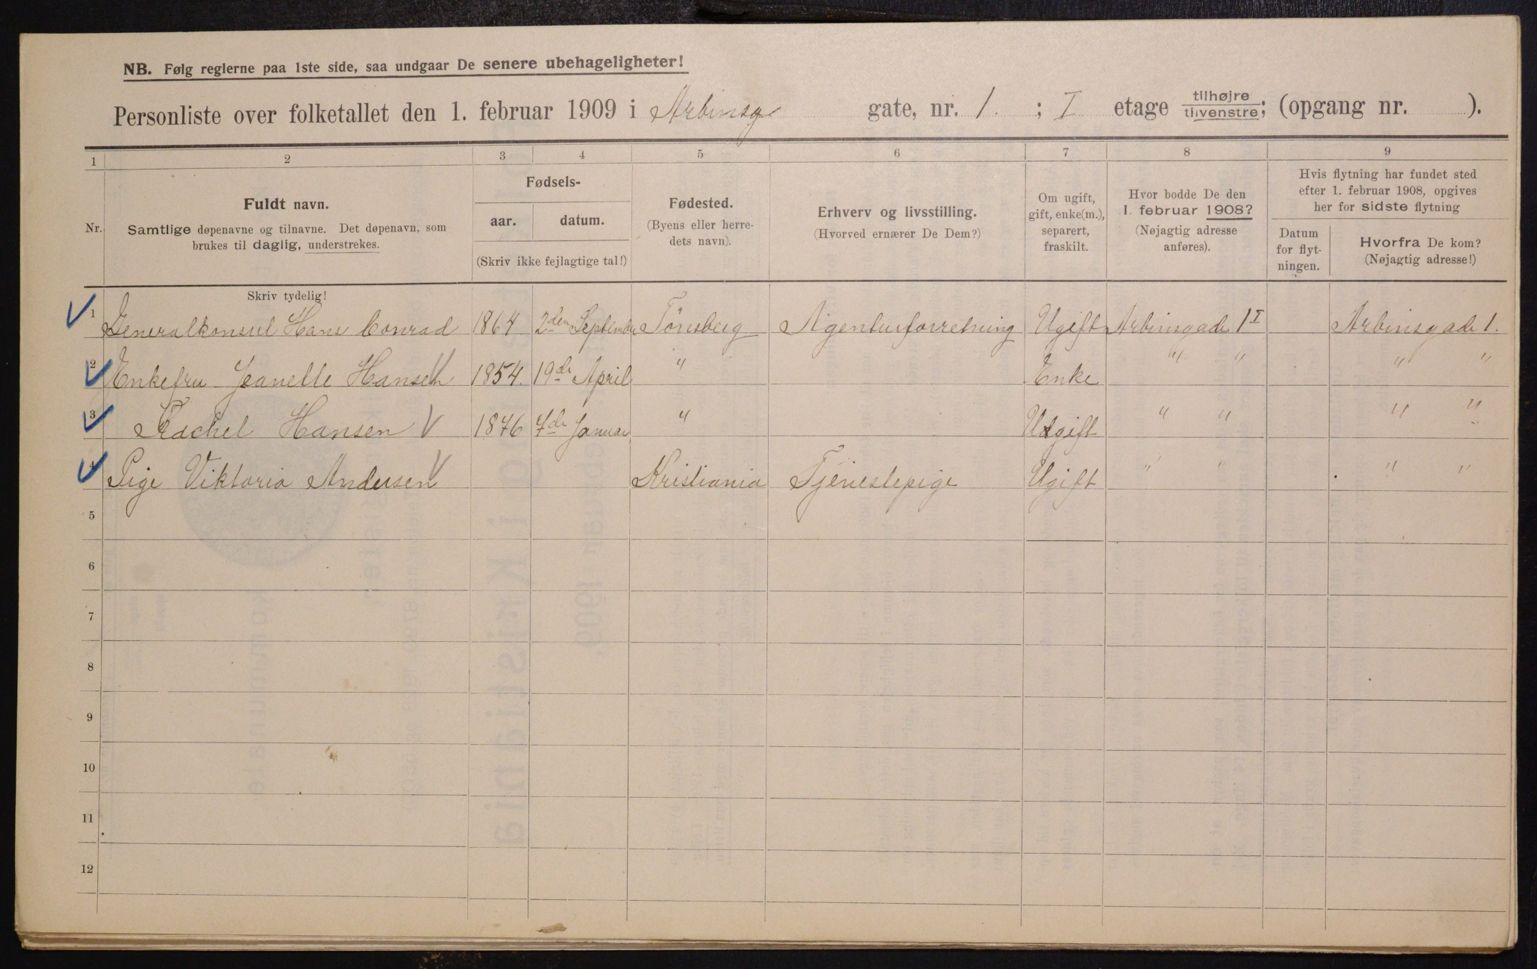 NB. Følg reglerne paa 1ste side, saa undgaar De senere ubehageligheter!
Personliste over folketallet den 1. februar 1909 i Arbinsg gate, nr. 1. ; I etage tilhøjre tilvenstre; (opgang nr. ).
1 2 3 4 5 6 7 8 9
Nr.
Fuldt navn.
Samtlige døpenavne og tilnavne. Det døpenavn, som
brukes til daglig, understrekes.
Skriv tydelig!
Fødsels-
aar. datum.
(Skriv ikke fejlagtige tal!)
Fødested.
(Byens eller herre-
dets navn).
Erhverv og livsstilling.
(Hvorved ernærer De Dem?)
Om ugift,
gift, enke(m.),
separert,
fraskilt.
Hvor bodde De den
1. februar 1908?
(Nøjagtig adresse
anføres).
Hvis flytning har fundet sted
efter 1. februar 1908, opgives
her for sidste flytning
Datum
for flyt-
ningen.
Hvorfra De kom?
(Nøjagtig adresse!)
1 Generalkonsul Hans Conrad 1864 2den September Tönsberg Agenturforretning Ugift Arbinsgade 1 I Arbinsgade 1.
2 Enkefru Jeanette Hansen 1854. 19de April " Enke " " " "
3 Rachel Hansen 1876 7de Januar " Ugift " " " "
4 Pige Viktoria Andersen Kristiania Tjenestepige Ugift " " " "
5
6
7
8
9
10
11
12